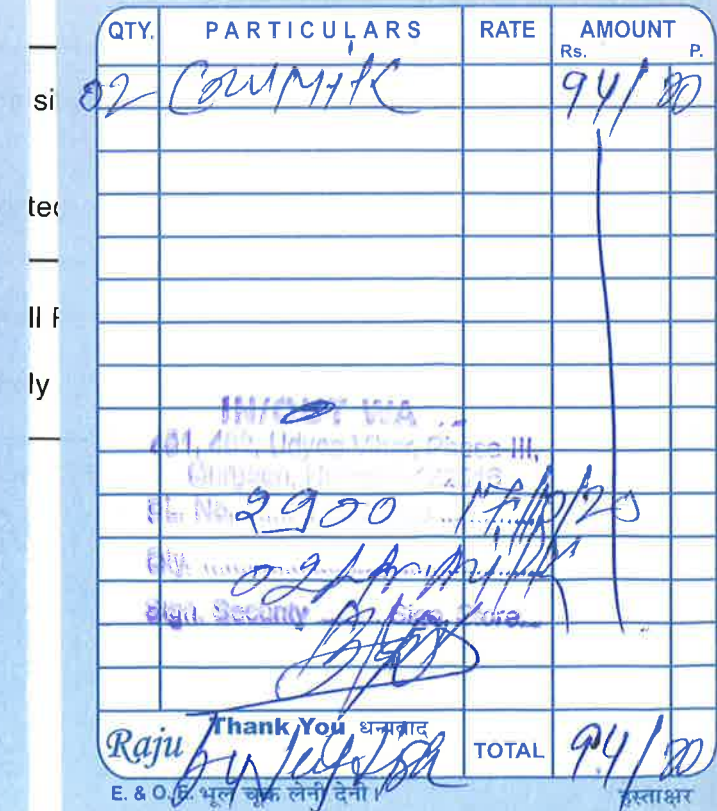 si
ted
ll F
ly
QTY. PARTICULARS RATE AMOUNT
Rs. P.
02 COW MILK 94/20
IN/OUT WA
Phase III,
SL. No. 2900 17/10/20
Qty. 02 Ltr. Milk
Sign. Security Sign. Store
Raju Thank You धन्यवाद TOTAL 94/20
E. & O.E. भूल चूक लेनी देनी। हस्ताक्षर